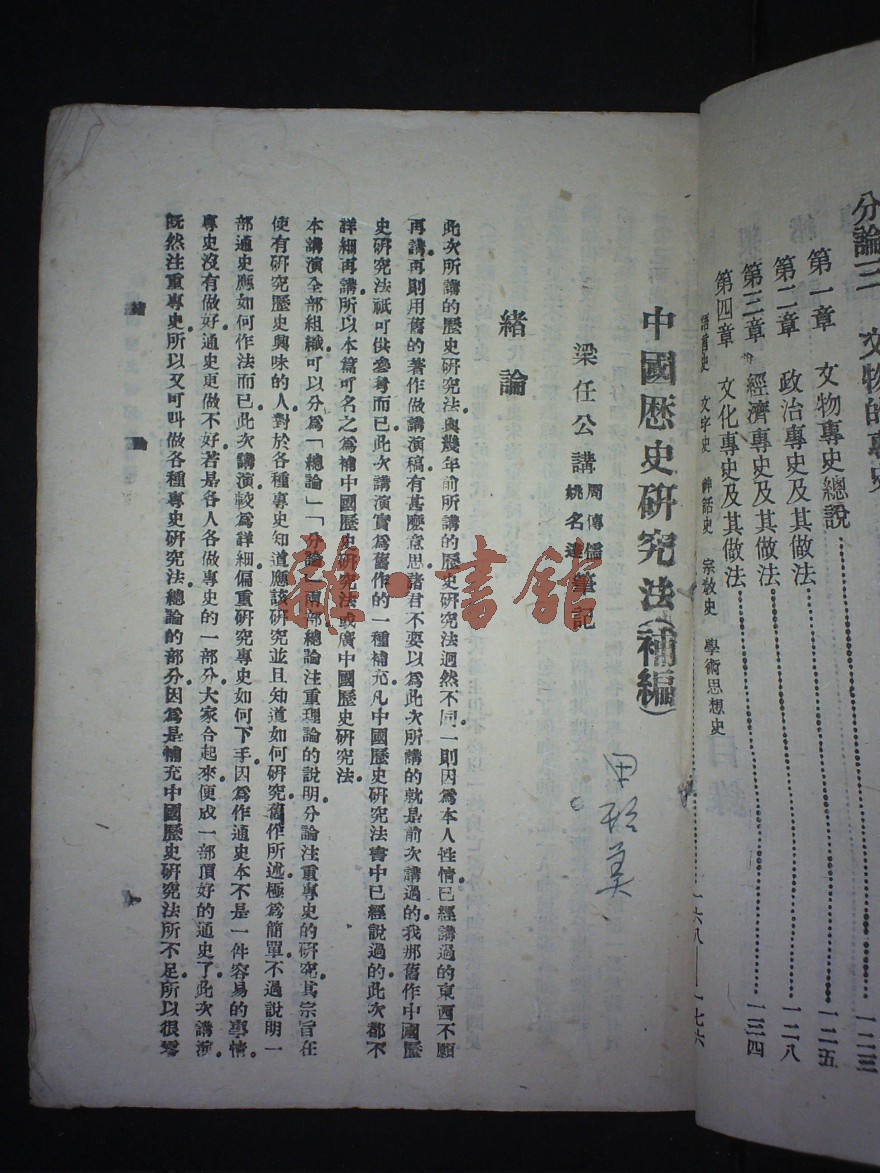 分論三 文物的專史
第一章 文物專史總說 一二五
第二章 政治專史及其做法 一二八
第三章 經濟專史及其做法 一三四
第四章 文化專史及其做法
語言史 文字史 神話史 宗教史 學術思想史
中國歷史研究法(補編)
梁任公講 周傳儒 姚名達 筆記
田
美
緒論
此次所講的歷史研究法,與幾年前所講的歷史研究法迥然不同。一則因為本人性情,已經講過的東西,不願
再講;再則用舊的著作做講演稿,有甚麼意思。諸君不要以為此次所講的就是前次講過的。我那舊作中國歷
史研究法,祇可供參考而已。此次講演實為舊作的一種補充。凡中國歷史研究法書中已經說過的,此次都不
詳細再講。所以本篇可名之為補中國歷史研究法或廣中國歷史研究法。
本講演全部組織,可以分為「總論」「分論」兩部。總論注重理論的說明,分論注重專史的研究。其宗旨在
使有研究歷史興味的人,對於各種專史知道應該研究並且知道如何研究。舊作所述,極為簡單,不過說明一
部通史應如何作法而已。此次講演,較為詳細,偏重研究專史如何下手。因為作通史本不是一件容易的事情,
專史沒有做好,通史更做不好。若是各人各做專史的一部分,大家合起來,便成一部頂好的通史了。此次講演,
既然注重專史,所以又可叫做各種專史研究法。總論的部分,因為是補充中國歷史研究法所不足,所以很零
緒論
雜·書館